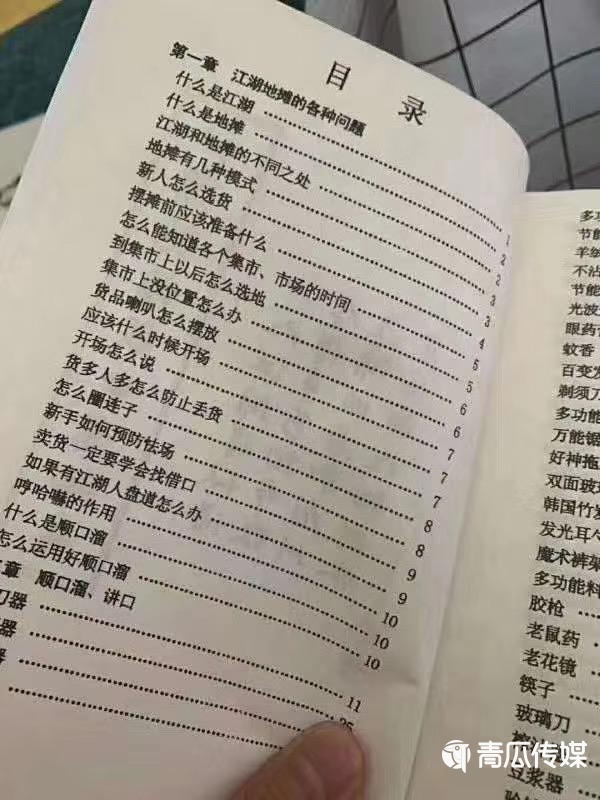 目录
第一章 江湖地摊的各种问题
什么是江湖 1
什么是地摊 2
江湖和地摊的不同之处 2
地摊有几种模式 3
新人怎么选货 3
摆摊前应该准备什么 4
怎么能知道各个集市、市场的时间 5
到集市上以后怎么选地 5
集市上没位置怎么办 6
货品喇叭怎么摆放 6
应该什么时候开场 7
开场怎么说 7
货多人多怎么防止丢货 7
怎么圈连子 8
新手如何预防怯场 8
卖货一定要学会找借口 9
如果有江湖人盘道怎么办 9
哼哈嚇的作用 10
什么是顺口溜 10
怎么运用好顺口溜 10
章 顺口溜、讲口
刀器 11
器
器
多功
节能
羊绒
不沾
节能
光波
眼药
蚊香
百变发
剃须刀
多功能
万能锯
好神拖
双面玻
韩国竹炭
发光耳勺
魔术裤架
多功能料
胶枪
老鼠药
老花镜
筷子
玻璃刀
豆浆器
青瓜传媒